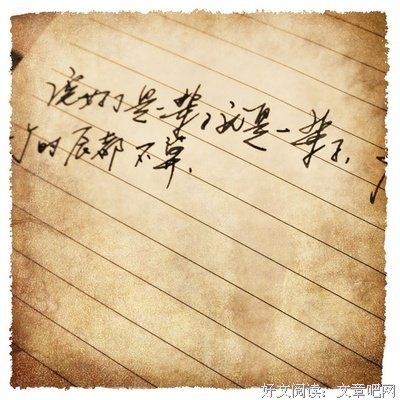 说好了是一辈子就是一辈子，
时辰都不算.
好文阅读：文章吧网